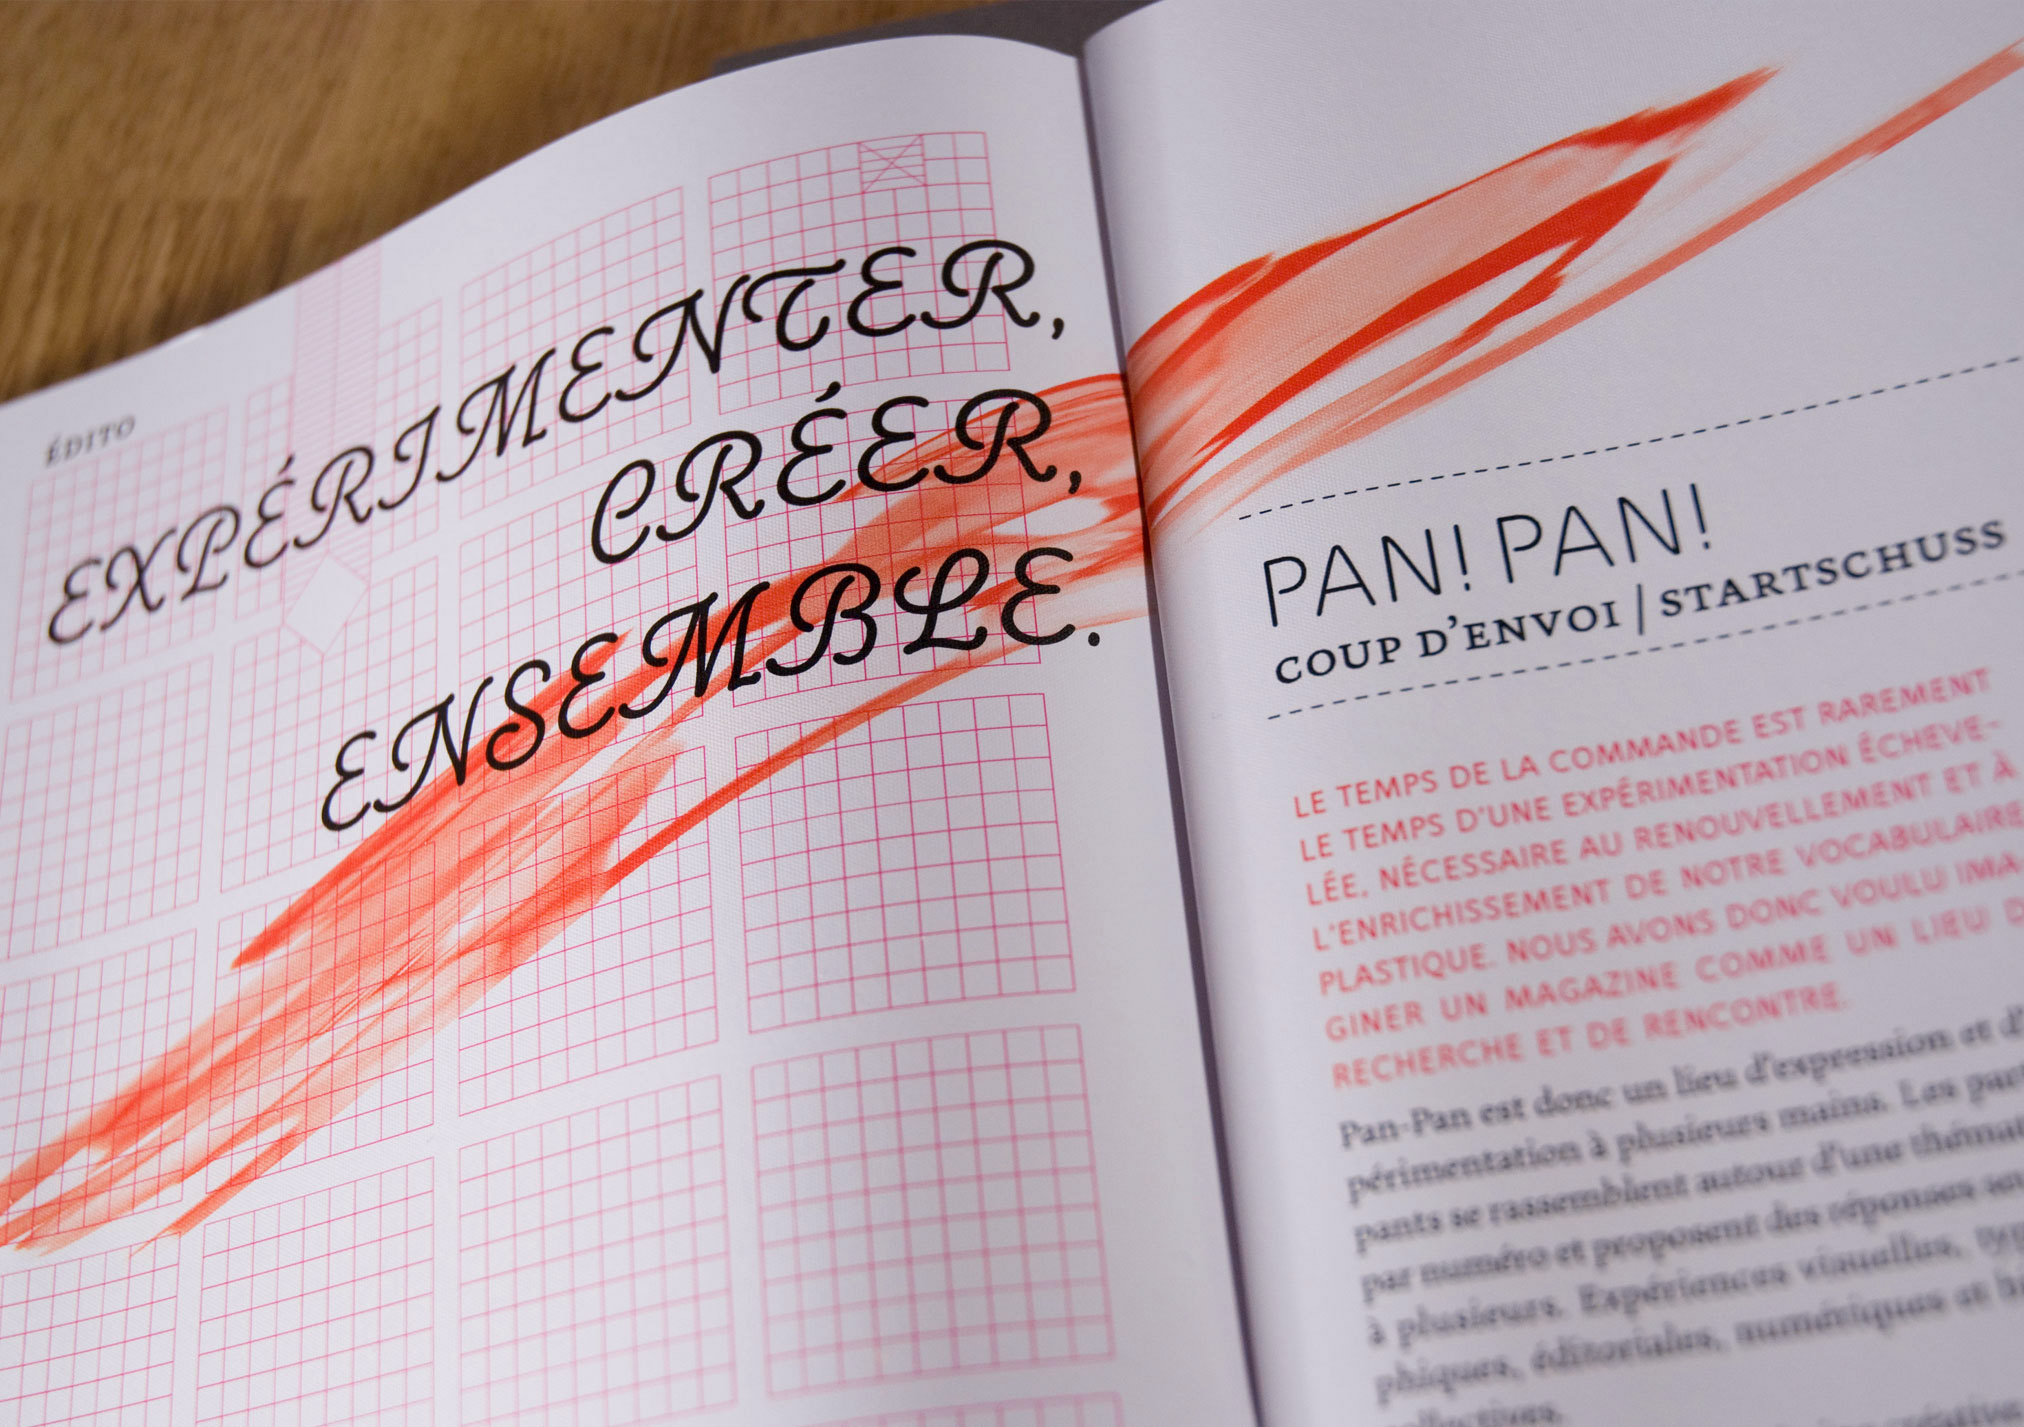 ÉDITO
EXPÉRIMENTER,
CRÉER,
ENSEMBLE.
PAN! PAN!
COUP D'ENVOI / STARTSCHUSS
LE TEMPS DE LA COMMANDE EST RAREMENT
LE TEMPS D'UNE EXPÉRIMENTATION ÉCHEVE-
LÉE, NÉCESSAIRE AU RENOUVELLEMENT ET À
L'ENRICHISSEMENT DE NOTRE VOCABULAIRE
PLASTIQUE. NOUS AVONS DONC VOULU IMA-
GINER UN MAGAZINE COMME UN LIEU
RECHERCHE ET DE RENCONTRE.
Pan-Pan est donc un lieu d'expression et
périmentation à plusieurs mains. Les
pants se rassemblent autour d'une
par numéro et proposent des réponses
à plusieurs. Expériences visuelles,
phiques, éditoriales, numériques et
collectives.